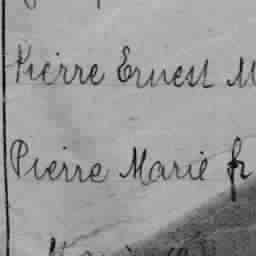 Pierre Ernest M
Pierre Marie fr